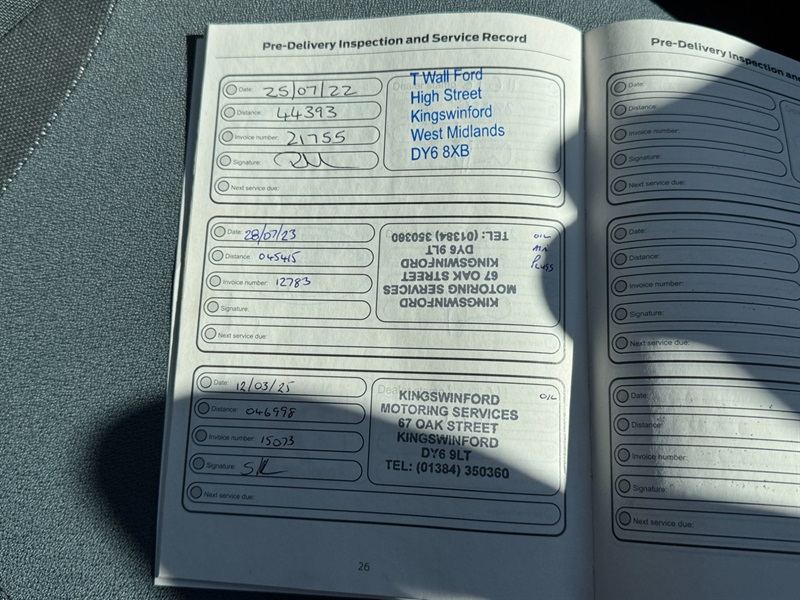 Pre-Delivery Inspection and Service Record
Date: 25/07/22
Distance: 44393
Invoice number: 21755
Signature:
Next service due:
T Wall Ford
High Street
Kingswinford
West Midlands
DY6 8XB
Date: 28/07/23
Distance: 045415
Invoice number: 12783
Signature:
Next service due:
KINGSWINFORD
MOTORING SERVICES
67 OAK STREET
KINGSWINFORD
DY6 9LT
TEL: (01384) 350360
OIL
AIR
PLUGS
Date: 12/03/25
Distance: 046998
Invoice number: 15073
Signature:
Next service due:
KINGSWINFORD
MOTORING SERVICES
67 OAK STREET
KINGSWINFORD
DY6 9LT
TEL: (01384) 350360
OIL
26
Pre-Delivery Inspection an
Date:
Distance:
Invoice number:
Signature:
Next service due:
Date:
Distance:
Invoice number:
Signature:
Next service due:
Date:
Distance:
Invoice number:
Signature:
Next service due: